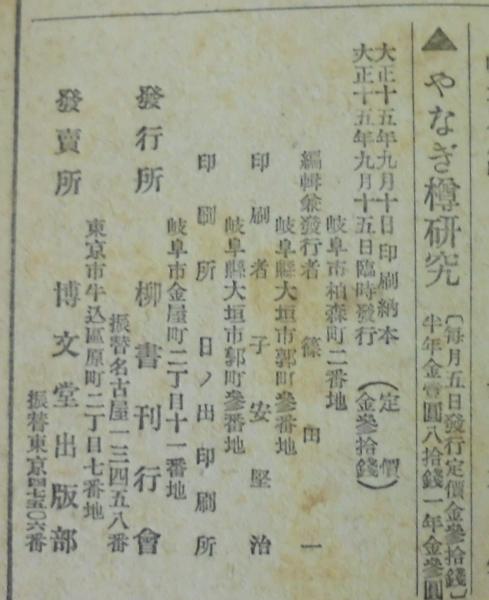 ▲やなぎ樽研究
〔每月五日發行定價金參拾錢〕
半年金壹圓八拾錢一年金參圓
大正十五年九月十日印刷納本
大正十五年九月十五日臨時發行
定價
(金參拾錢)
岐阜市柏森町二番地
編輯兼發行者 篠田一
岐阜縣大垣市郭町參番地
印刷者 子安堅治
岐阜縣大垣市郭町參番地
印刷所 日ノ出印刷所
岐阜市金屋町二丁目十一番地
發行所 柳書刊行會
振替名古屋一三四五八番
東京市牛込區原町二丁目七番地
發賣所 博文堂出版部
振替東京四七五〇六番